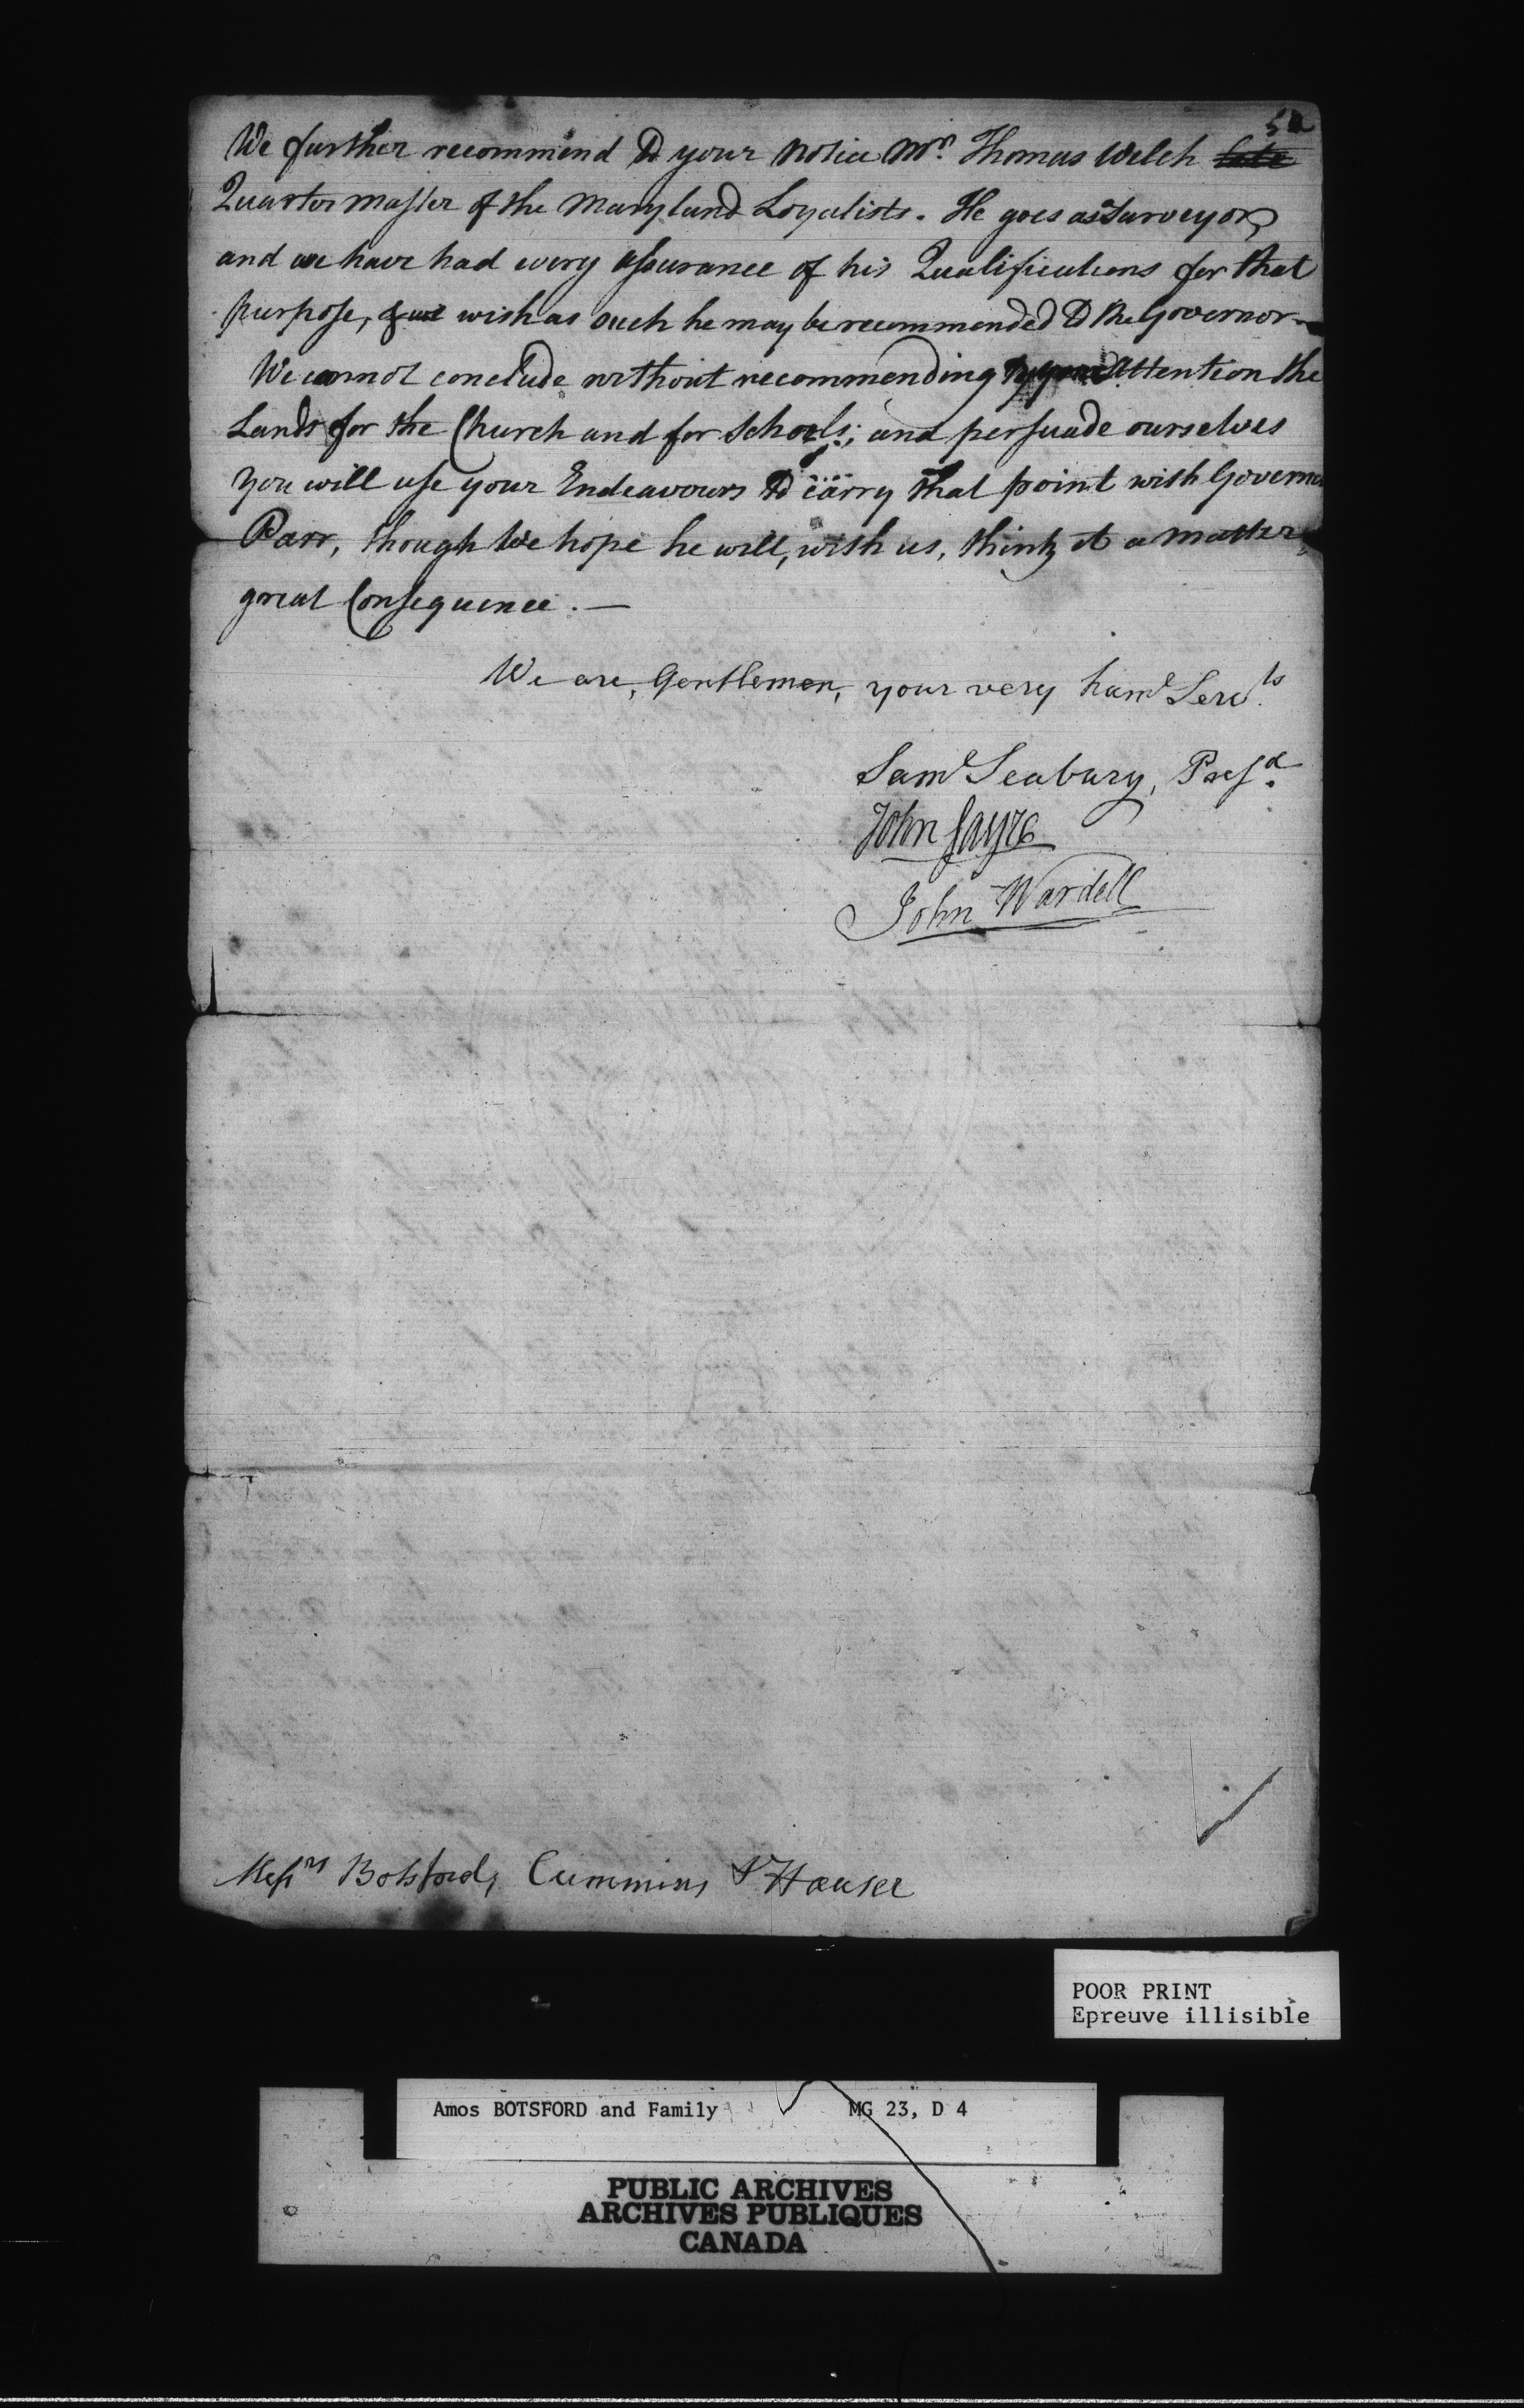 We further recommend to your Notice Mr. Thomas Welch late
Quarter Master of the Maryland Loyalists. He goes as Surveyor,
and we have had every assurance of his Qualifications for that
purpose, & wish as such he may be recommended to the Governor.
We cannot conclude without recommending to your Attention the
Lands for the Church and for Schools; and persuade ourselves
you will use your Endeavours to carry that point with Govern
Parr, though We hope he will, with us, think it a matter
great Consequence. —
We are, Gentlemen, your very humle Servts.
Saml Seabury, Presd.
John Sayre
John Wardell
Messrs Botsford, Cummins & Hauser
POOR PRINT
Epreuve illisible
Amos BOTSFORD and Family MG 23, D 4
PUBLIC ARCHIVES
ARCHIVES PUBLIQUES
CANADA